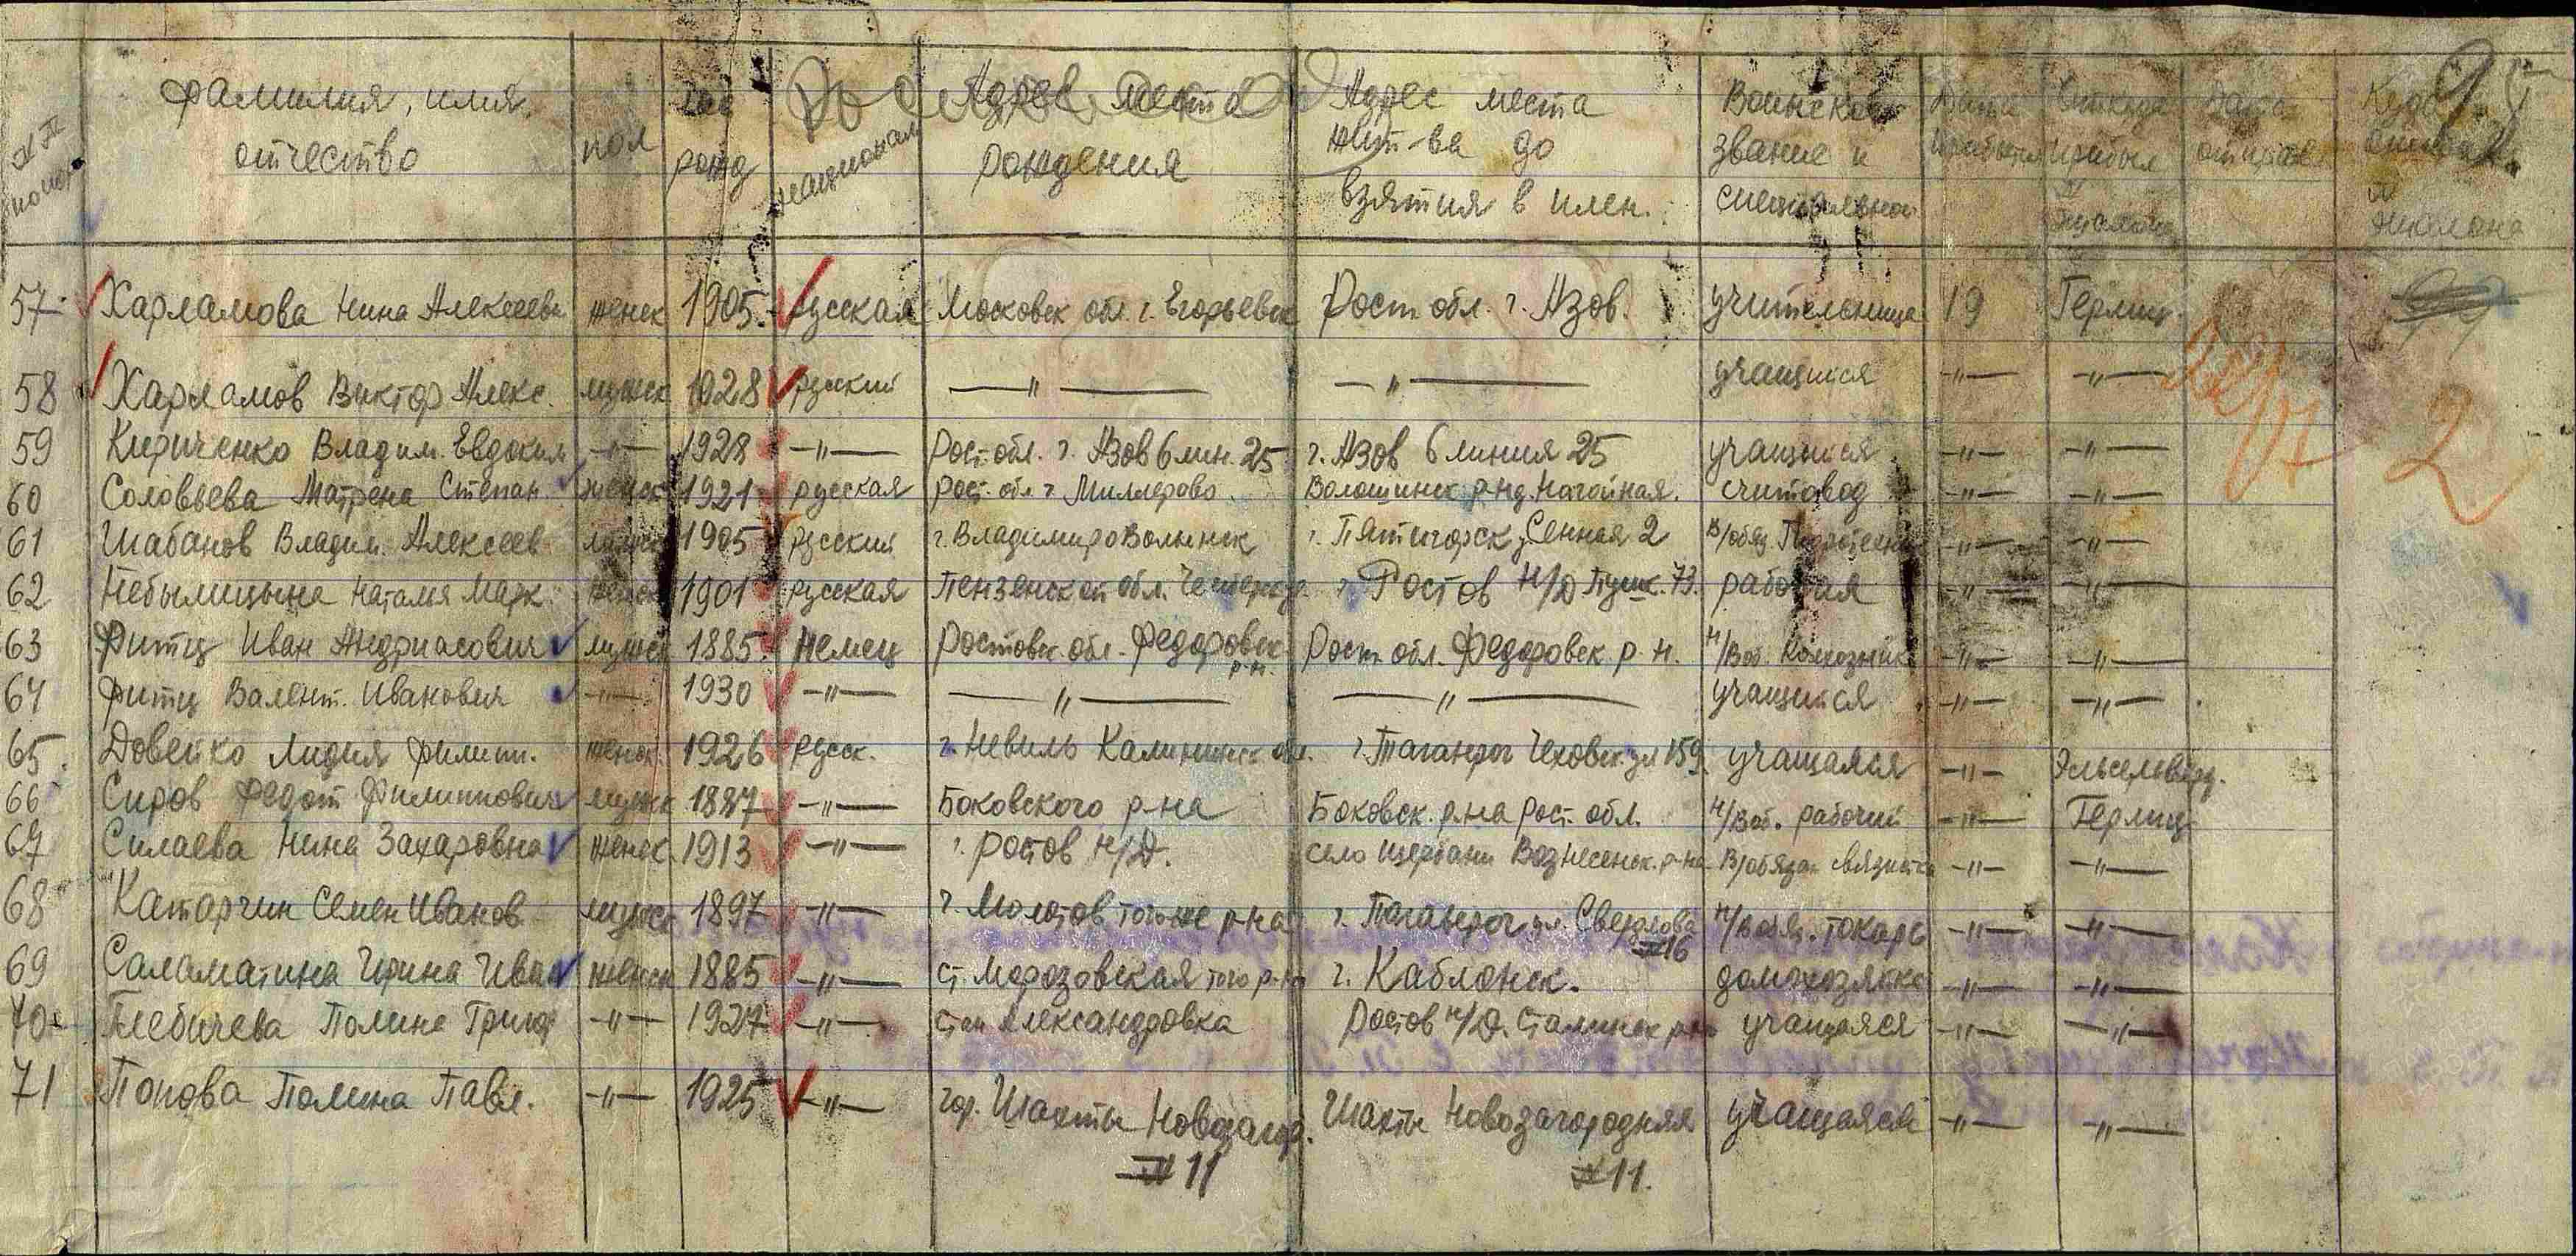 № п порядк
фамилия, имя, отчество
пол
год рожд
национальн
Адрес места рождения
Адрес места жит-ва до взятия в плен.
Воинское звание и специальност
Дата прибытия
Откуда прибыл
Дата отправ
Куда
57. Харламова Нина Алексеевн женск 1905. русская Московск обл. г. Егорьевск Рост обл. г. Азов. учительница 19 Герлиц.
58 Харламов Виктор Алекс. мужск 1928 русский —"— —"— учащийся —"— —"—
59 Кириченко Владим. Евдоким —"— 1928 —"— Рост. обл. г. Азов 6 лин. 25 г. Азов 6 линия 25 учащийся —"— —"—
60 Соловьева Матрена Степан. женск 1921 русская рост. обл г Миллерово. Волошинск р-на Нагольная. считовод —"— —"—
61 Шабанов Владим. Алексеев мужск 1905 русский г. Владимиро Волынск г. Пятигорск, Сенная 2 В/обяз. —"— —"—
62 Небылицына Наталья Марк. женск 1901 русская Пензенской обл. г. Ростов Н/Д Пушк. 73. рабочая —"— —"—
63 Фитц Иван Андриасович мужск 1885. немец Ростовск. обл. Федоровск. р-н. Рост. обл. Федоровск. р. н. Н/Воб. Колхозник —"— —"—
64 Фитц Валент. Иванович —"— 1930 —"— —"— —"— учащийся —"— —"—
65. Довейко Лидия Филипп. женск. 1926 русск. г. Невиль Калининск обл. г. Таганрог Чеховск. ул 159. учащаяся —"— Эльсельверд.
66 Сиров Федот Филиппович мужск 1887 —"— Боковского р-на Боковск. р-на рост. обл. Н/Воб. рабочий —"— Герлиц
67 Силаева Нина Захаровна женск. 1913 —"— г. Ростов Н/Д. село Щербани Вознесенск. р-на В/обязан связистка —"— —"—
68 Катаргин Семен Иванов мужск 1897 —"— г. Молотов того же р-на г. Таганрог ул. Свердлова №16 Н/Вобяз. токарь —"— —"—
69 Саламатина Ирина Иван женск 1885 —"— ст. Морозовская того р-на г. Каблонск. домохозяйка —"— —"—
70 Глебичева Полина Григор —"— 1927 —"— стан Александровка Ростов Н/Д. Сталинск р-на учащаяся —"— —"—
71 Попова Полина Павл. —"— 1925 —"— гор. Шахты Новозагор. №11 Шахты Новозагородняя №11. учащаяся —"— —"—
2